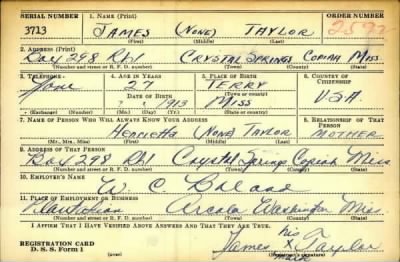 SERIAL NUMBER 1. NAME (Print) ORDER NUMBER
3713 JAMES (NONE) TAYLOR 2592
(First) (Middle) (Last)
2. ADDRESS (Print)
Box 298 Rt 1 CRYSTAL SPRINGS COPIAH MISS
(Number and street or R. F. D. number) (Town) (County) (State)
3. TELEPHONE 4. AGE IN YEARS 5. PLACE OF BIRTH 6. COUNTRY OF CITIZENSHIP
None 27 TERRY
DATE OF BIRTH (Town or county)
? ? 1913 MISS U.S.A.
(Exchange) (Number) (Mo.) (Day) (Yr.) (State or country)
7. NAME OF PERSON WHO WILL ALWAYS KNOW YOUR ADDRESS 8. RELATIONSHIP OF THAT PERSON
Henrietta (NONE) TAYLOR MOTHER
(Mr., Mrs., Miss) (First) (Middle) (Last)
9. ADDRESS OF THAT PERSON
Box 298 Rt 1 Crystal Springs Copiah Miss
(Number and street or R. F. D. number) (Town) (County) (State)
10. EMPLOYER'S NAME
W. C.
11. PLACE OF EMPLOYMENT OR BUSINESS
Plantation Arcola Washington Miss.
(Number and street or R. F. D. number) (Town) (County) (State)
I AFFIRM THAT I HAVE VERIFIED ABOVE ANSWERS AND THAT THEY ARE TRUE.
his
REGISTRATION CARD James X Taylor
D. S. S. Form 1 mark